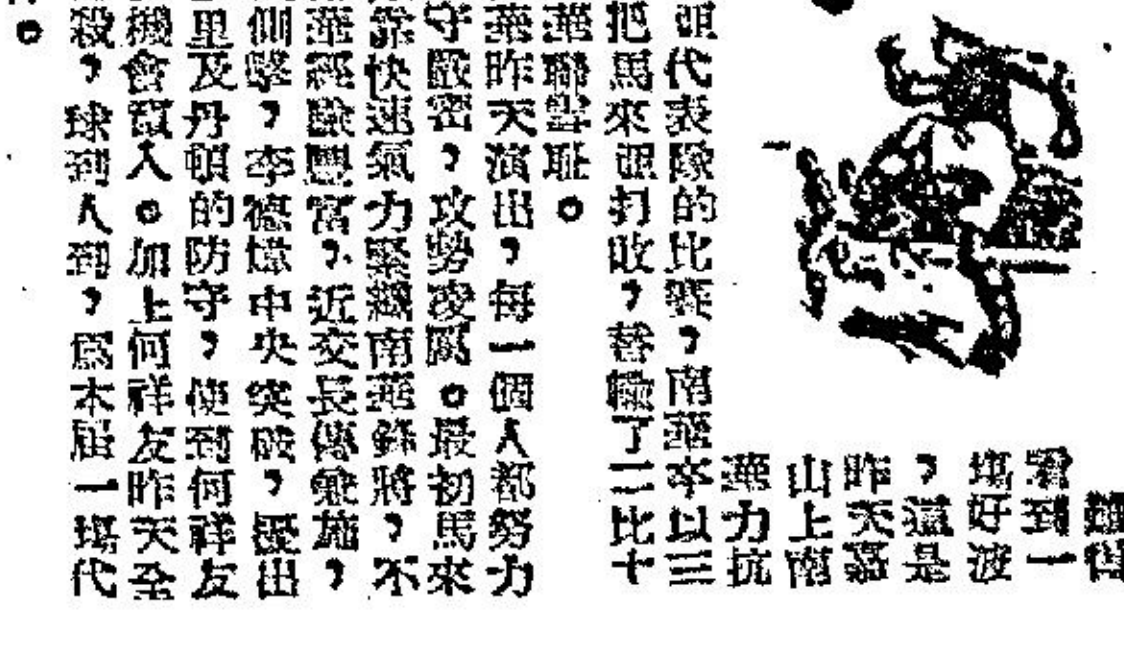 難得
看到一
場好波
，這是
昨天嘉
山上南
華力抗
亞代表隊的比賽，南華卒以三
把馬來亞打敗，替輸了二比十
華聯雪耻。
華昨天演出，每一個人都努力
守嚴密，攻勢凌厲。最初馬來
靠快速氣力緊纏南華鋒將，不
華經驗豐富，近交長傳兼施，
側擊，李德輝中央突破，
里及丹頓的防守，使到何祥友
機會頻入。加上何祥友昨天全
殺，球到人到，爲本屆一場代
。